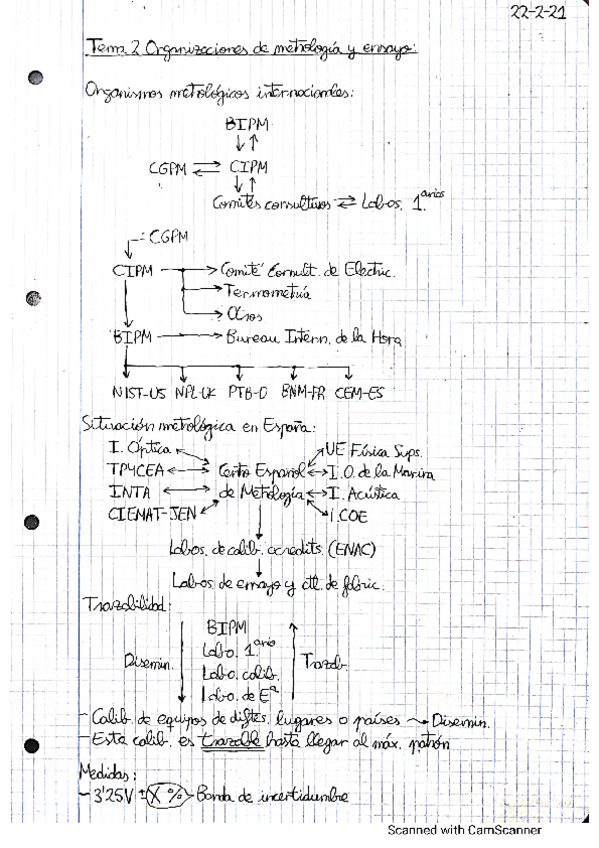 22-2-21
Tema 2 Organizaciones de metrología y ensayo:
Organismos metrológicos internacionales:
BIPM
CGPM ⇄ CIPM
Comités consultivos ⇄ Labos. 1.arios
CGPM
CIPM → Comité Consult. de Electric.
→ Termometría
→ Otros
BIPM → Bureau Intern. de la Hora
NIST-US NPL-UK PTB-D BNM-FR CEM-ES
Situación metrológica en España:
I. Óptica UE Física Sups.
TPYCEA ↔ Centro Español ↔ I.O. de la Marina
INTA ↔ de Metrología ↔ I. Acústica
CIEMAT-JEN I.COE
Labos. de calib. acredits. (ENAC)
Labos. de ensayo y ctl. de fabric.
Trazabilidad:
BIPM
Labo. 1.ario
Disemin. Labo. calib. Trazab.
Labo. de Eª
- Calib. de equipos de diftes. lugares o países → Disemin.
- Esta calib. es trazable hasta llegar al máx. patrón
Medidas:
- 3'25V ± X % - Banda de incertidumbre
Scanned with CamScanner